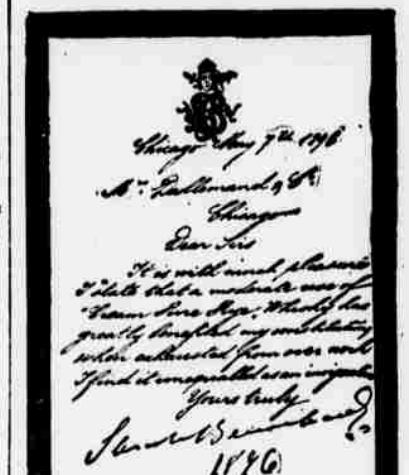 Chicago May 7th 1896
Mr. Lallemand & Co
Chicago
Dear Sirs
It is with much pleasure
I state that a moderate use of
"Cream Pure Rye" Whisky has
greatly benefited my constitution
when exhausted from over work
I find it unequalled as an
Yours truly
Sarah Bernhardt
1896